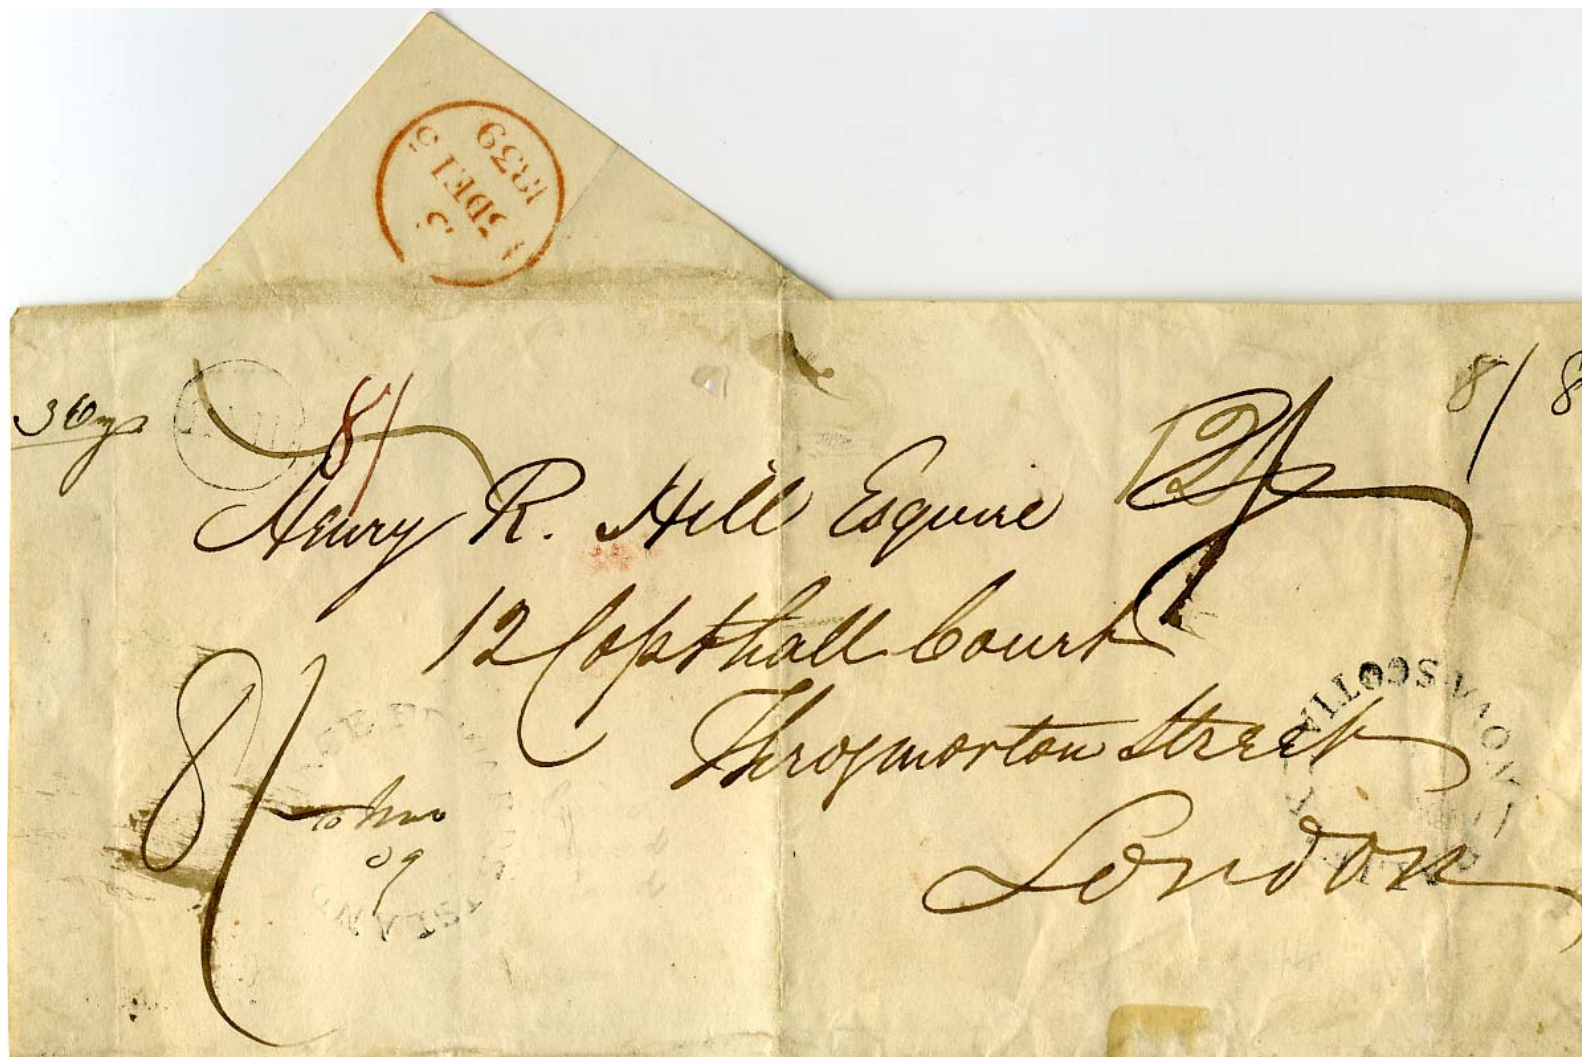 1839
8/
8/ 8
Henry R. Hill Esquire
12 Copthall Court
Throgmorton Street
London
8/
NOVA SCOTIA
PRINCE EDWARD ISLAND